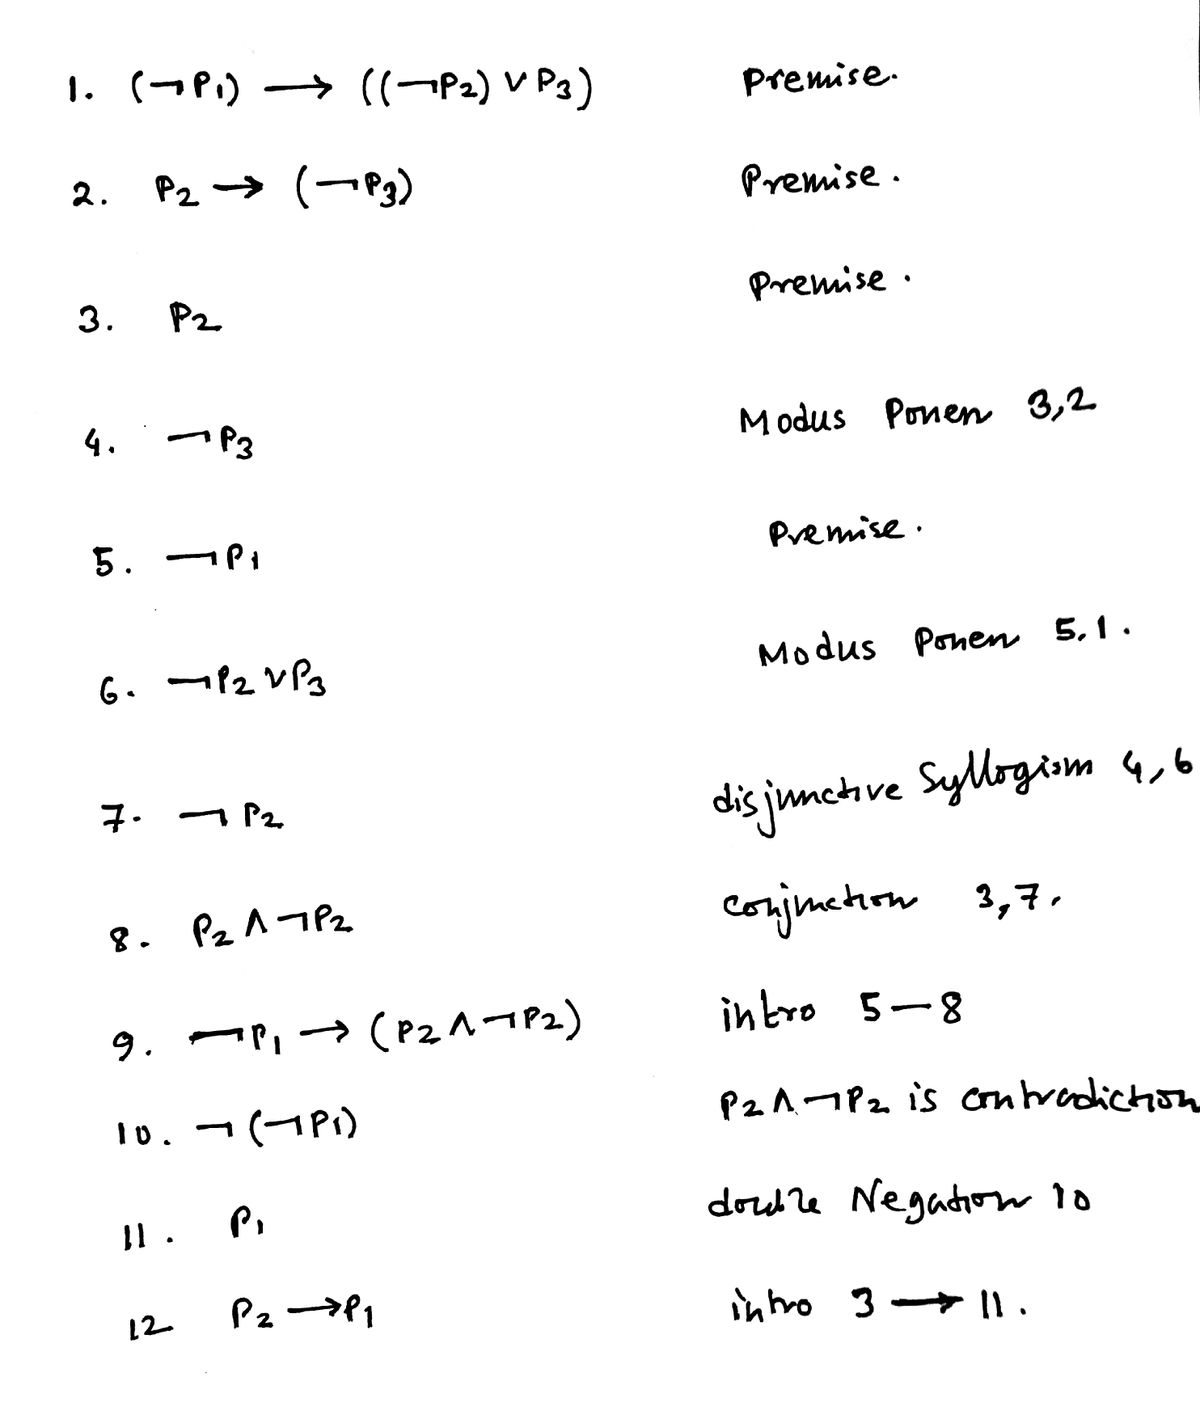 1. (¬P1) → ((¬P2) ∨ P3) Premise.
2. P2 → (¬P3) Premise.
3. P2 Premise.
4. ¬P3 Modus Ponen 3,2
5. ¬P1 Premise.
6. ¬P2 ∨ P3 Modus Ponen 5,1.
7. ¬P2 disjunctive Syllogism 4,6
8. P2 ∧ ¬P2 conjunction 3,7.
9. ¬P1 → (P2 ∧ ¬P2) intro 5-8
10. ¬(¬P1) P2 ∧ ¬P2 is contradiction
11. P1 double Negation 10
12 P2 → P1 intro 3 → 11.